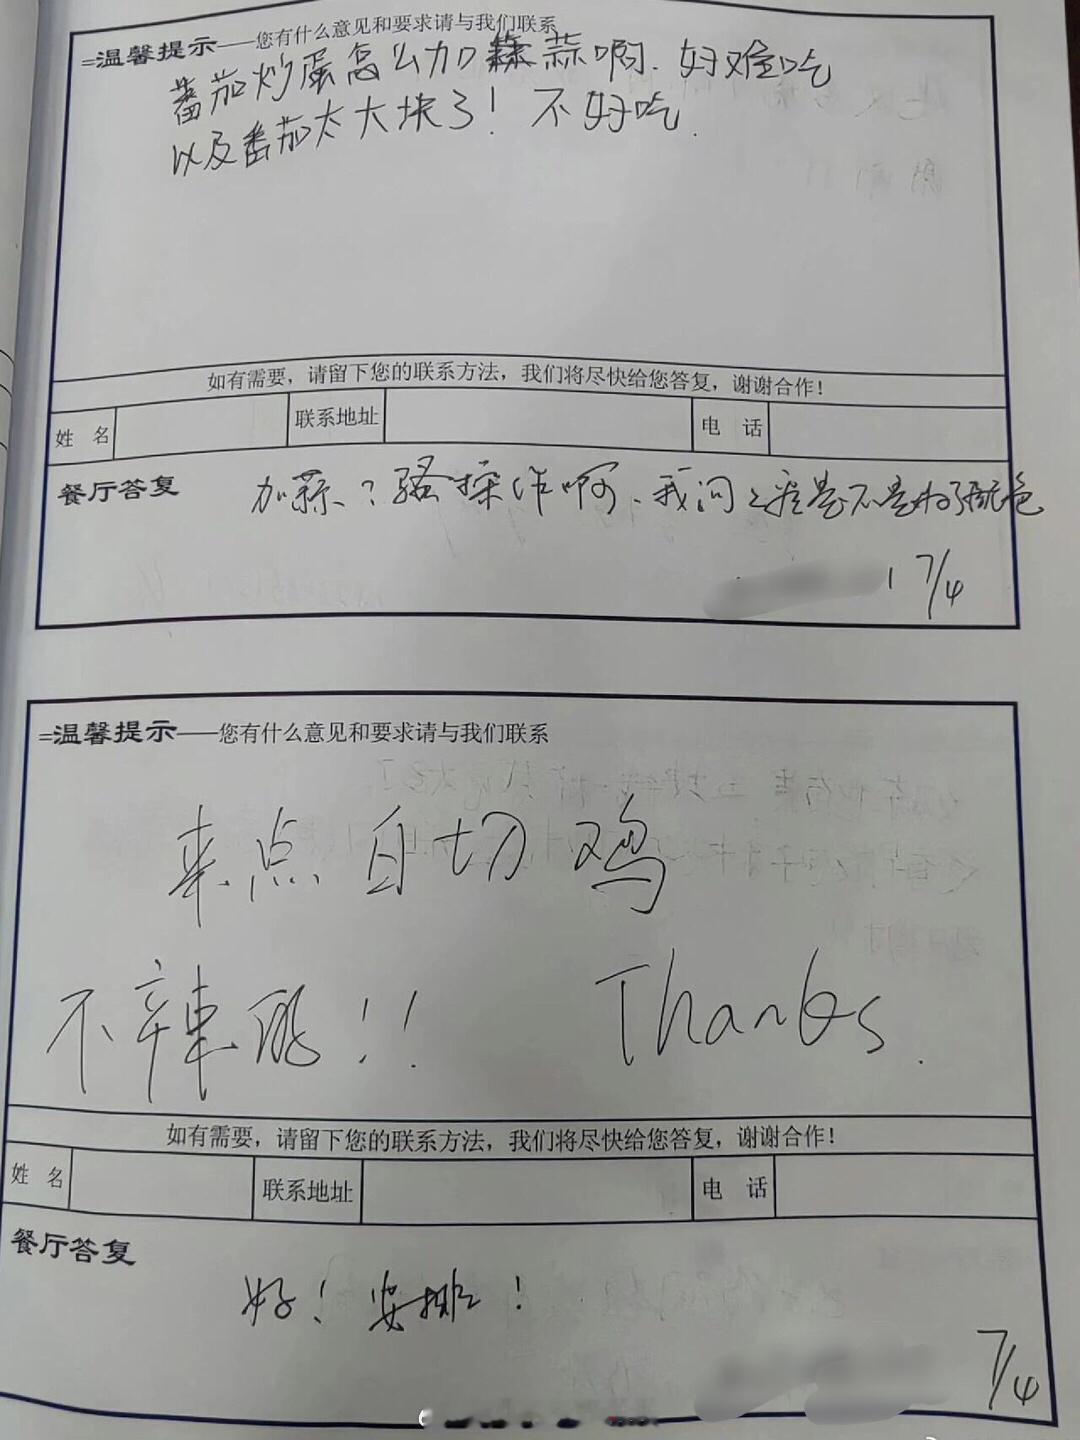 =温馨提示——您有什么意见和要求请与我们联系
番茄炒蛋怎么加蒜啊.好难吃
以及番茄太大块了!不好吃.
如有需要，请留下您的联系方法，我们将尽快给您答复，谢谢合作！
姓 名 联系地址 电 话
餐厅答复
加蒜、?骚操作啊、我问之后是不是为了配色
7/4
=温馨提示——您有什么意见和要求请与我们联系
来点白切鸡
不辣的!! Thanks.
如有需要，请留下您的联系方法，我们将尽快给您答复，谢谢合作！
姓 名 联系地址 电 话
餐厅答复
好!安排!
7/4